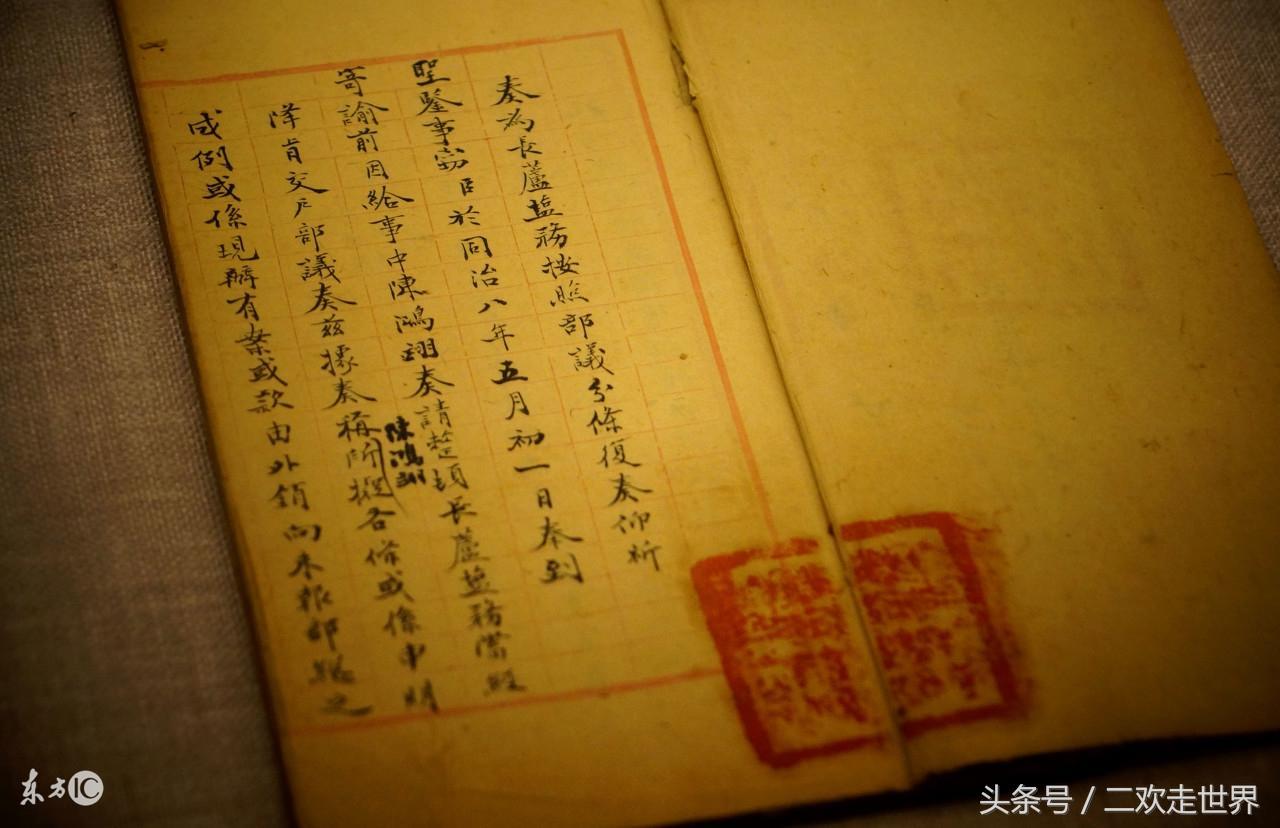 奏為長蘆鹽務按照部議分條復奏仰祈
聖鑒事竊臣於同治八年五月初一日奉到
寄諭前因給事中陳鴻翊奏請整頓長蘆鹽務當經
降旨交戶部議奏茲據奏稱所擬各條或係申明
陳鴻翊
成例或係現辦有案或款由外銷向未報部總之
东方IC
头条号 / 二欢走世界